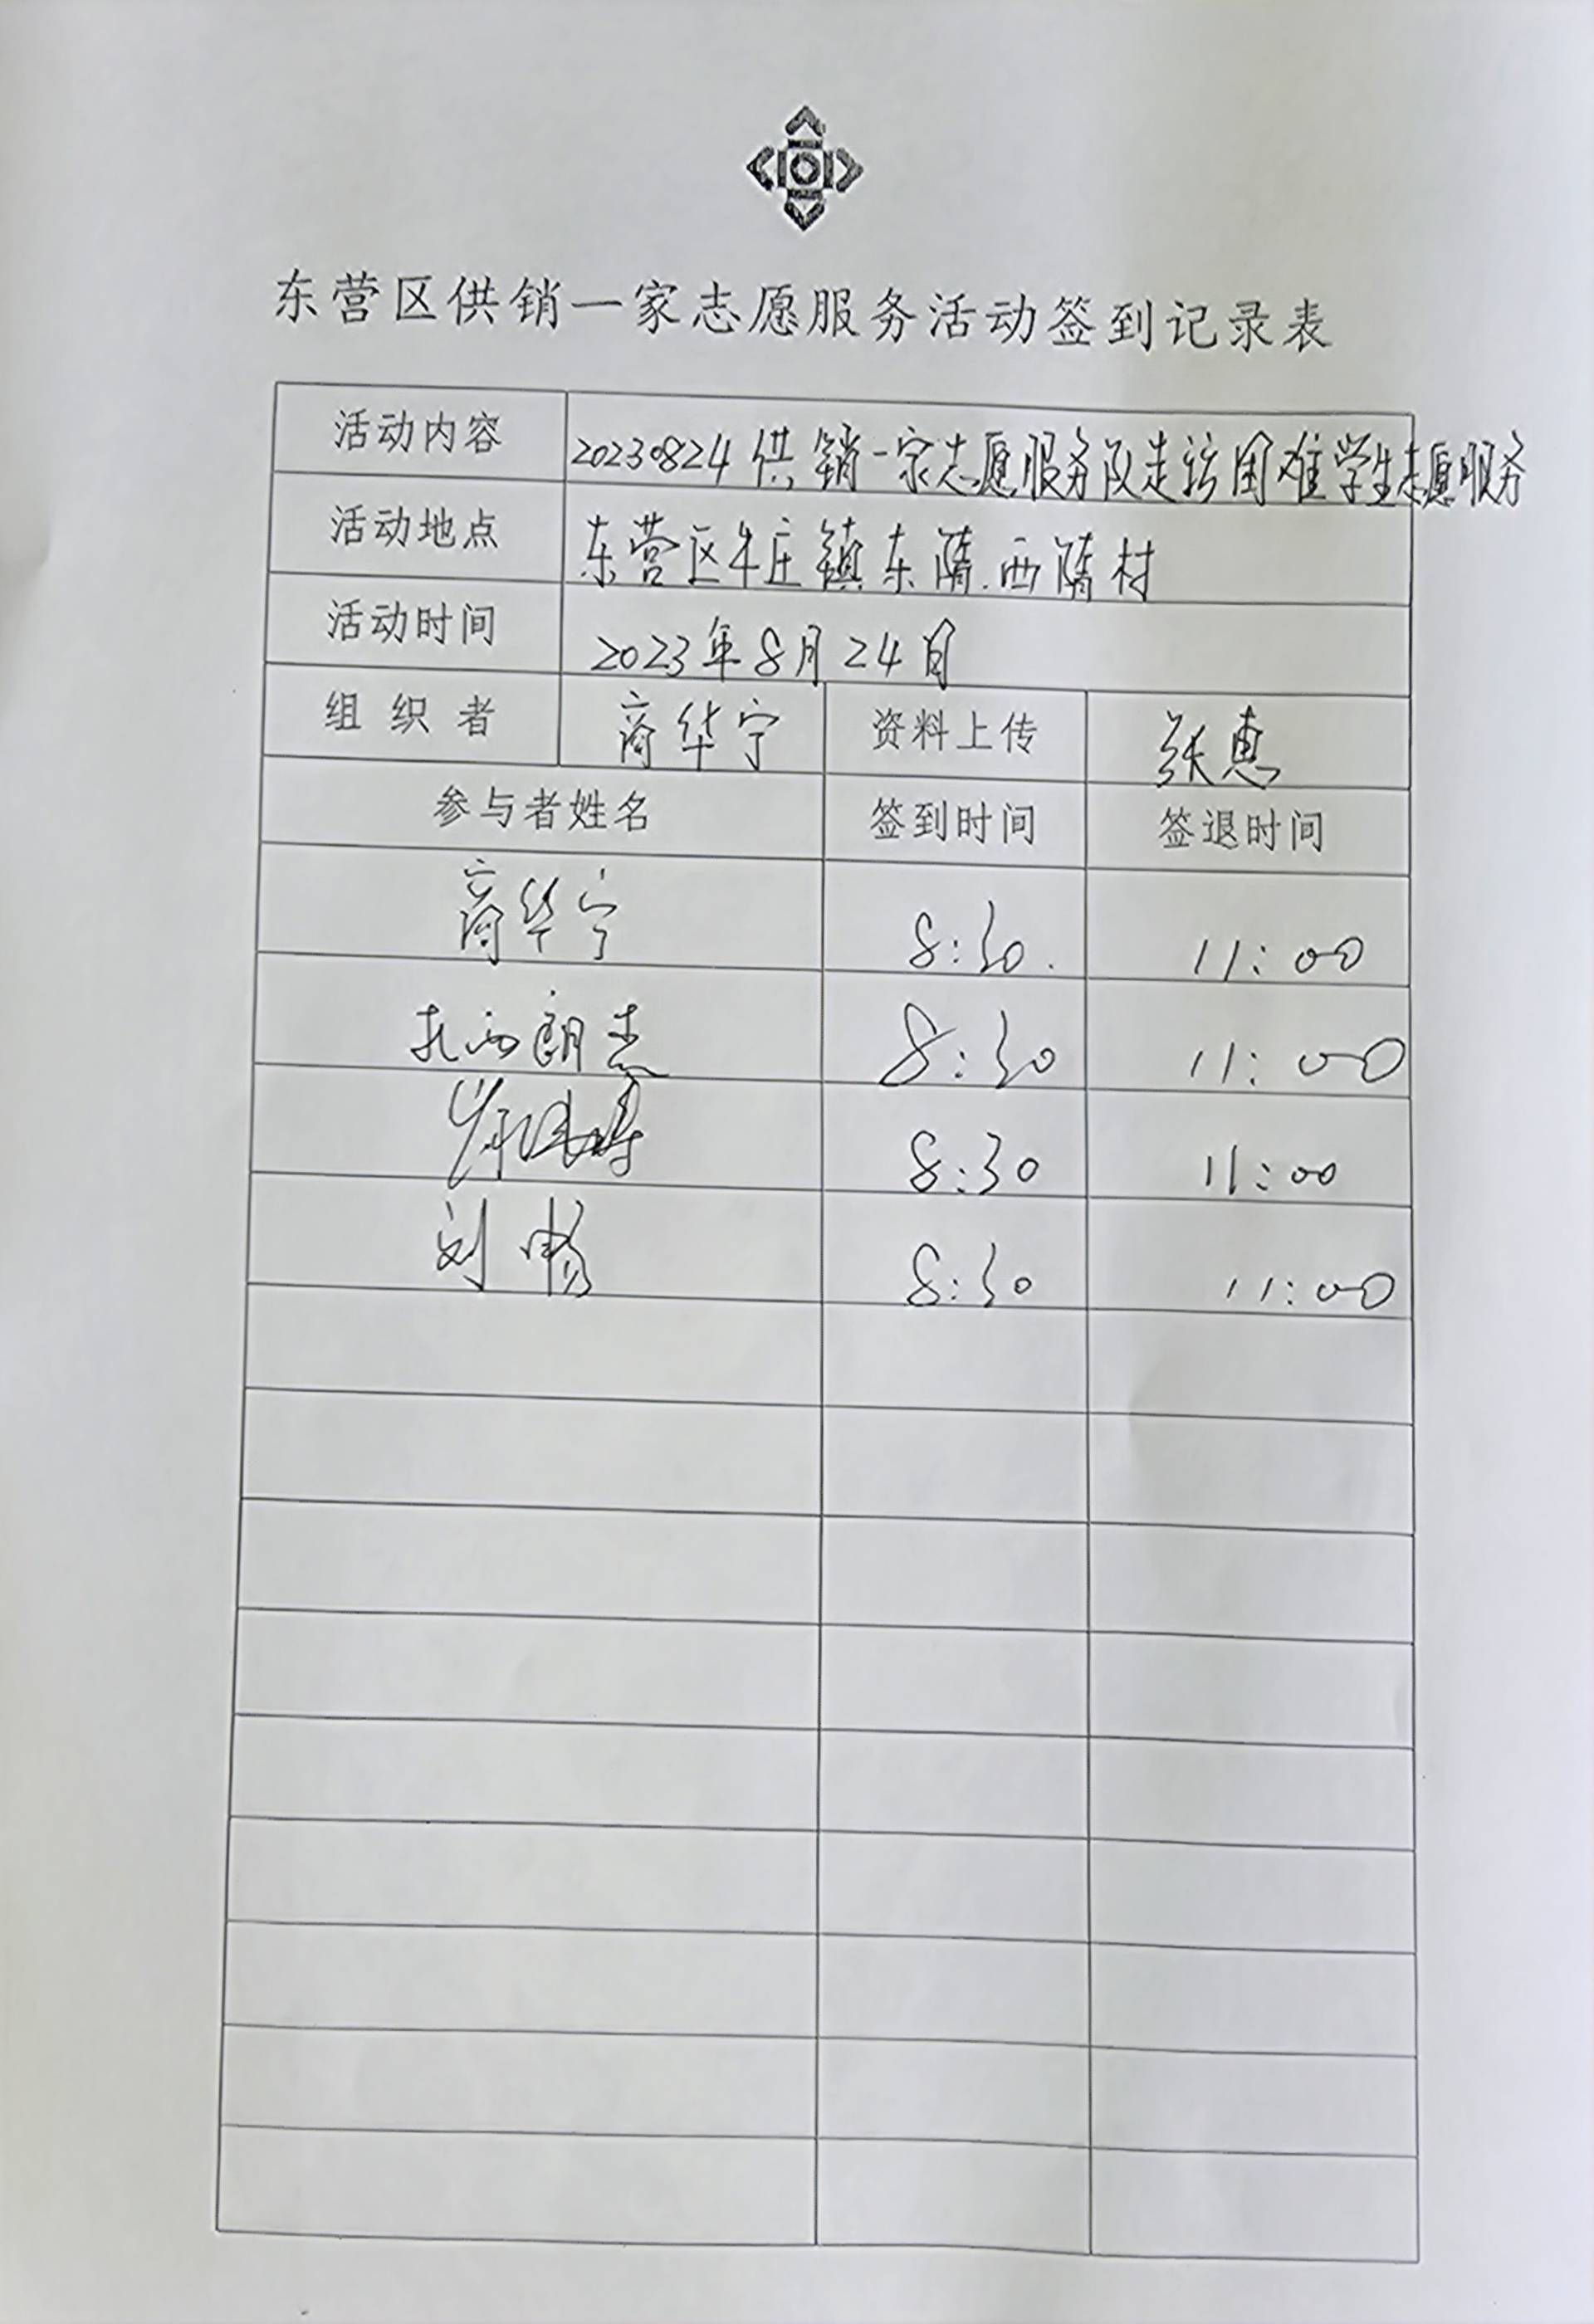 东营区供销一家志愿服务活动签到记录表
活动内容 20230824供销一家志愿服务队走访困难学生志愿服务
活动地点 东营区牛庄镇东隋.西隋村
活动时间 2023年8月24日
组织者 商华宁 资料上传 张惠
参与者姓名 签到时间 签退时间
商华宁 8:30. 11:00
扎西朗杰 8:30 11:00
8:30 11:00
刘畅 8:30 11:00